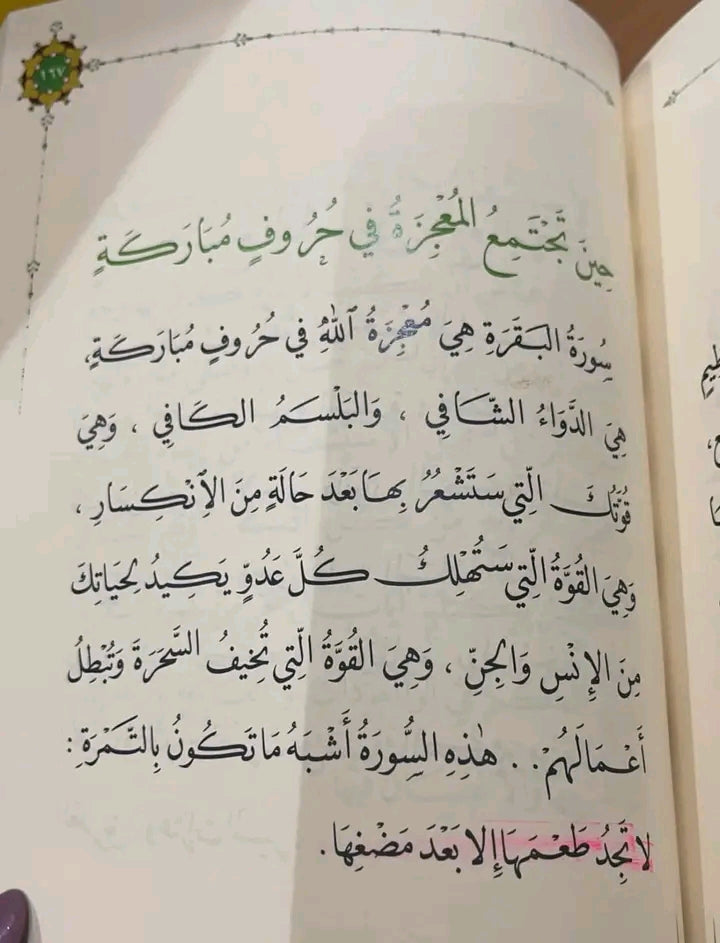 ١٦٧
حِينَ تَجْتَمِعُ المُعْجِزَةُ فِي حُرُوفٍ مُبَارَكَةٍ
سُورَةُ البَقَرَةِ هِيَ مُعْجِزَةُ ٱللّٰهِ فِي حُرُوفٍ مُبَارَكَةٍ،
هِيَ الدَّوَاءُ الشَّافِي ، وَالبَلْسَمُ الكَافِي ، وَهِيَ
قُوَّتُكَ الَّتِي سَتَشْعُرُ بِهَا بَعْدَ حَالَةٍ مِنَ الِانْكِسَارِ ،
وَهِيَ القُوَّةُ الَّتِي سَتُهْلِكُ كُلَّ عَدُوٍّ يَكِيدُ لِحَيَاتِكَ
مِنَ الإِنْسِ وَالجِنِّ ، وَهِيَ القُوَّةُ الَّتِي تُخِيفُ السَّحَرَةَ وَتُبْطِلُ
أَعْمَالَهُمْ.. هٰذِهِ السُّورَةُ أَشْبَهُ مَا تَكُونُ بِالتَّمْرَةِ :
لا تَجِدُ طَعْمَهَا إِلا بَعْدَ مَضْغِهَا.